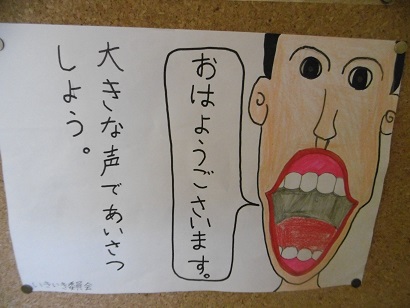 大きな声であいさつ
しょう。
おはようございます。
いきいき委員会